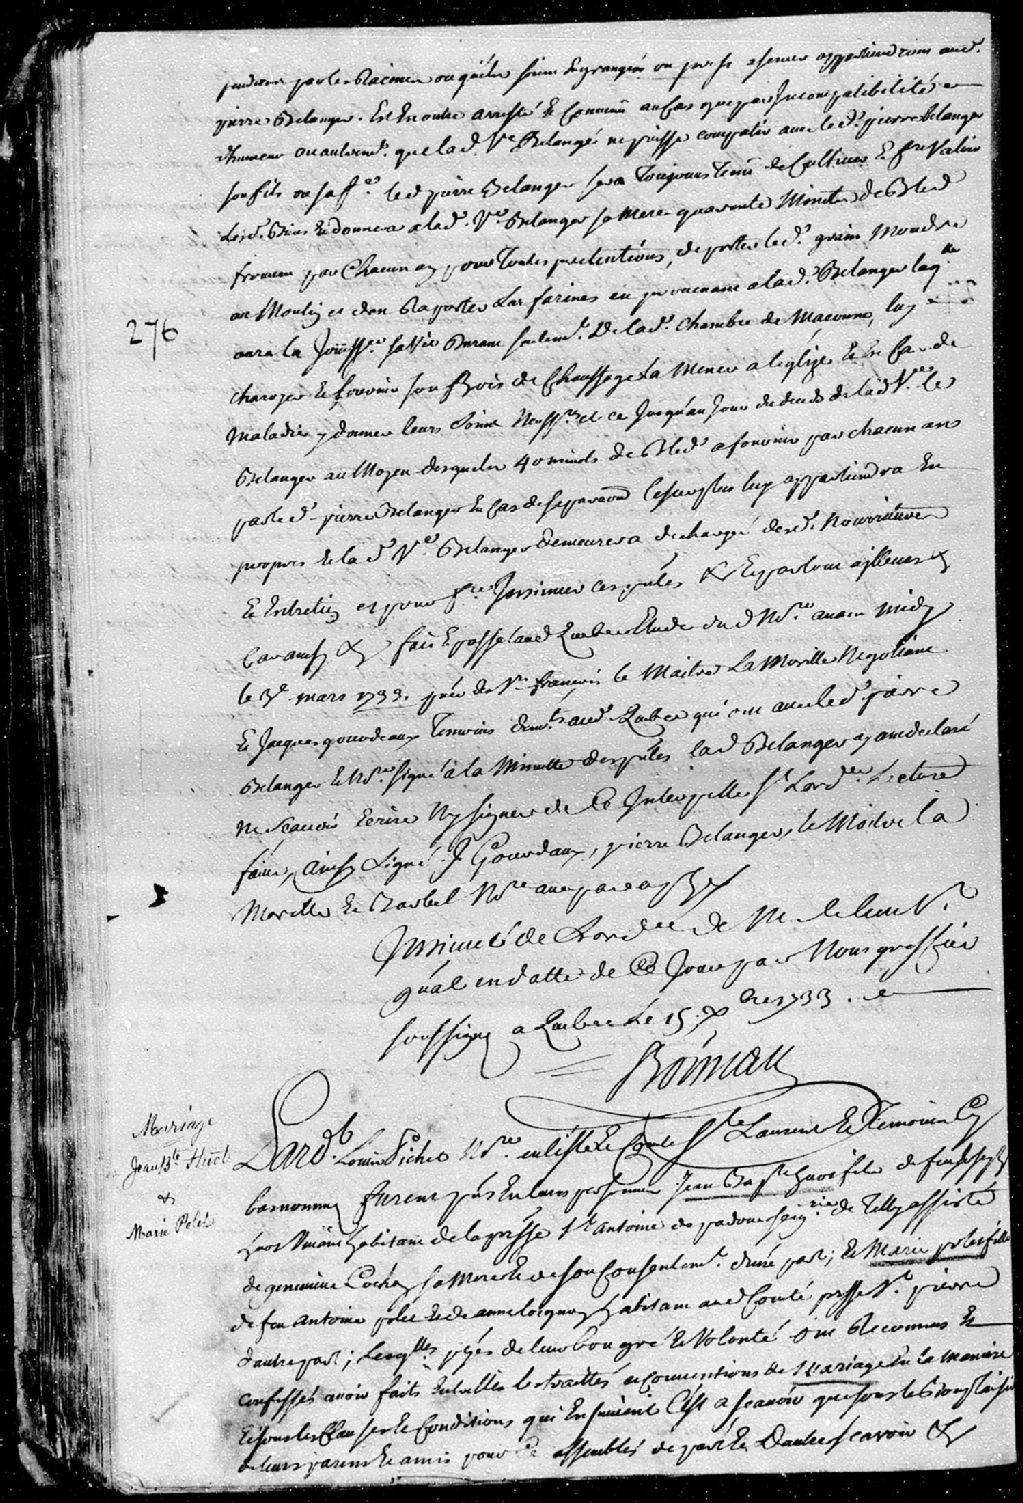 pendans par les Racines ou qu'elles soient Engrangées ou
pierre Belanger. Est En outre arresté & Convenu au Cas que par Incompatibilité
d'humeur ou autremt. que lad. Ve Belanger ne puisse compatir avec led. pierre Belanger
son fils ou sa ff. led pierre Belanger sera Toujours Tenu de Cultiver & faire Valoir
Lesd. Biens & donnera a lad. Ve Belanger sa Mere quarante Minots de Bled
froment par Chacun an pour Toutes pretentions, de porter led. grain Moudre
au Moulin et d'en Raporter Les farines en provenant a lad. Belanger laqlle
aura la Jouissce sa Vie Durant seulemt. De lad. Chambre de Maconne, luy
276
Charoyer & fournir son Bois de Chauffage La Mener a l'eglise & En Cas de
Maladie y donner Leurs soins Necessres et ce Jusqu'au Jour du deceds de lad Ve.
Belanger au Moyen desquels 40 minots de Bled a fournir par chacun ans
par led. pierre Belanger En Cas de separaon luy appartiendra En
propre & lad Ve. Belanger demeurera dechargé desd. Nourriture
& Entretien et pour fre Insinuer ces pntes & partout ailleurs
Car ainsy & fait & passé aud Quebec Etude dud Nore avant midy
le 3e mars 1733. pnce de Sr. françois le Maitre La Morille Negotiant
& Jacques gourdeau Temoins demts aud. Quebec qui ont avec led. pierre
Belanger & Nore signé à la Minutte des pntes lad Belanger ayant declaré
ne scavoir Ecrire Ny signer de ce Interpellée St Lordce Lecture
faite, ainsy Signé J Gourdeau, pierre Belanger, le Maitre la
Morille & Barbel Nre avec paraphe
Insinué de Lordce de M. le lieut.
gnal en datte de ce Jour par Nous greffier
soussigné a Quebec Le 15 xbre 1733.
Boisseau
Mariage
Jean Bte Huot
&
Marie Polet
Pard. Louis Pichet Nre. en l'isle & Comté St Laurent & Temoins Cy
bas nommez furent pns En leurs personnes Jean Baptte huot fils de feu Joseph
huot Vivant habitant de la parroisse St antoine de padoue seigrie de Tilly assisté
de genevieve sa Mere & de son Consentemt. d'une part; & Marie polet fille
de feu antoine polet & de anne habitant aud Comté St. pierre
d'autre part; Lesqlles ptyes de leur bon gré & Volonté ont Reconnus &
confessés avoir faits Entr'elles les traittés et conventions de Mariage En la maniere
& sous les Clauses & Conditions qui Ensuivent C'est a scavoir que sous le bon plaisir
de leurs parens & amis pour ce assemblés de part & d'autre scavoir &